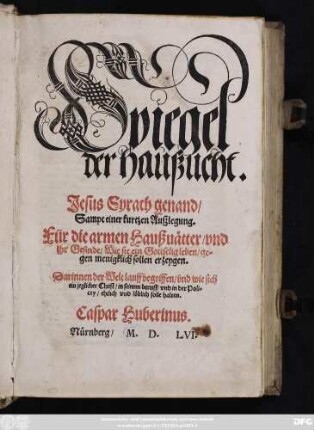 Spiegel
der Haußzucht.
Jesus Syrach genand/
Sampt einer kurtzen Außlegung.
Für die armen Haußuätter/vnd
jhr Gesinde/ Wie sie ein Gottselig leben/ ge-
gen menigklich sollen erzeygen.
Darinnen der Welt lauff begriffen/ vnd wie sich
ein jeglicher Christ/ in seinem beruff vnd in der Poli-
cey/ ehrlich vnd löblich solle halten.
Caspar Huberinus.
Nürnberg/ M. D. LVI.